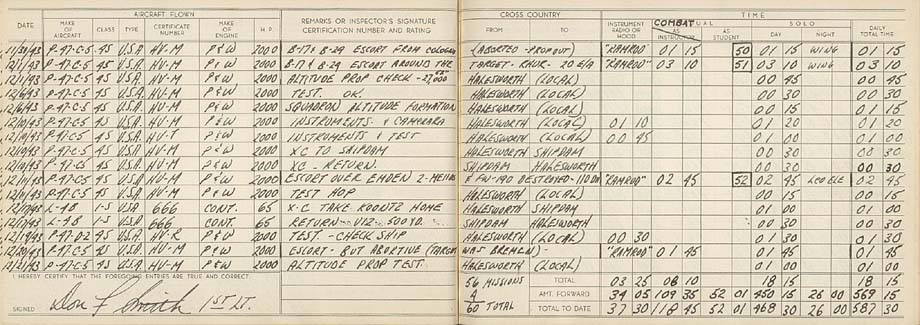 AIRCRAFT FLOWN
DATE MAKE OF AIRCRAFT CLASS TYPE CERTIFICATE NUMBER MAKE OF ENGINE H. P. REMARKS OR INSPECTOR'S SIGNATURE CERTIFICATION NUMBER AND RATING
CROSS COUNTRY FROM TO INSTRUMENT RADIO OR HOOD COMBAT DUAL AS INSTRUCTOR AS STUDENT TIME SOLO DAY NIGHT DAILY TOTAL TIME
11/30/43 P-47-C-5 45 U.S.A. HV-M P&W 2000 B-17 & B-24 ESCORT FROM COLOGNE (ABORTED - PROP OUT) "RAMROD" 01 15 50 01 15 WING 01 15
12/1/43 P-47-C-5 45 U.S.A. HV-M P&W 2000 B-17 & B-24 ESCORT AROUND THE TARGET - RHUR - 20 E/A "RAMROD" 03 10 51 03 10 WING 03 10
P-47-C-5 45 U.S.A. HV-M P&W 2000 ALTITUDE PROP CHECK - HALESWORTH (LOCAL) 00 45 00 45
12/6/43 P-47-C-5 45 U.S.A. HV-M P&W 2000 TEST. OK. HALESWORTH (LOCAL) 00 30 00 30
12/6/43 P-47-C-5 45 U.S.A. HV-M P&W 2000 SQUADRON ALTITUDE FORMATION HALESWORTH (LOCAL) 00 15 01 15
12/10/43 P-47-C-5 45 U.S.A. HV-M P&W 2000 INSTRUMENTS & HALESWORTH (LOCAL) 01 10 01 20 01 20
12/10/43 P-47-C-5 45 U.S.A. HV-T P&W 2000 INSTRUMENTS & TEST HALESWORTH (LOCAL) 00 45 01 00 01 00
12/10/43 P-47-C-5 45 U.S.A. HV-M P&W 2000 XC TO SHIPDAM HALESWORTH SHIPDAM 00 30 00 30
12/10/43 P-47-C-5 45 U.S.A. HV-M P&W 2000 XC - RETURN. SHIPDAM HALESWORTH 00 30 00 30
12/11/43 P-47-C-5 45 U.S.A. HV-M P&W 2000 ESCORT OVER EMDEN DESTROYED "RAMROD" 02 45 52 02 45 02 45
P-47-C-5 45 U.S.A. HV-M P&W 2000 TEST HOP HALESWORTH (LOCAL) 00 15 00 15
L-4B 1-S USA 666 CONT. 65 X-C TAKE KOONTZ HOME HALESWORTH SHIPDAM 01 00 01 00
L-4B 1-S U.S.A. 666 CONT. 65 RETURN - VIZ - 500 YD. SHIPDAM HALESWORTH 00 30 00 30
P-47-D-2 45 U.S.A. HV-R P&W 2000 TEST - CHECK SHIP HALESWORTH (LOCAL) 00 30 01 30 01 30
12/20/43 P-47-C-5 45 U.S.A. HV-M P&W 2000 ESCORT - BUT ABORTIVE (TARGET WAS BREMEN) "RAMROD" 01 45 01 45 01 45
P-47-C-5 45 U.S.A. HV-M P&W 2000 ALTITUDE PROP TEST. HALESWORTH (LOCAL) 01 00 01 00
I HEREBY CERTIFY THAT THE FOREGOING ENTRIES ARE TRUE AND CORRECT.
SIGNED Don F Smith 1ST LT.
56 MISSIONS TOTAL 03 25 08 10 18 15 18 15
4 AMT. FORWARD 34 05 109 35 52 01 450 15 26 00 569 15
60 TOTAL TOTAL TO DATE 37 30 118 45 52 01 468 30 26 00 587 30